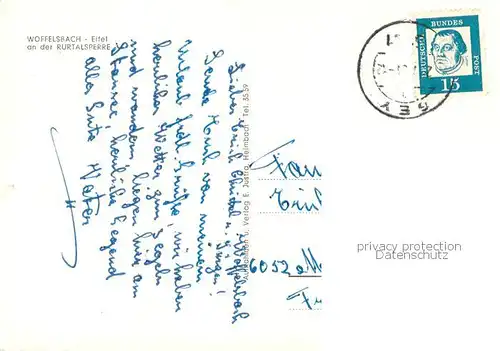 WOFFELSBACH - Eifel
an der RURTALSPERRE
Lieber Erich, Christel u. Jürgen!
Sende Euch von meinem
Urlaub frdl. Grüße, wir haben
herrliches Wetter zum Segeln
und wandern, liegen hier am
Stausee, herrliche Gegend
alles Gute Vater
Aufnahmen u. Verlag E. Justra, Heimbach, Tel. 3559
Fam
Erich
6052
DEUTSCHE BUNDESPOST
15
privacy protection
Datenschutz